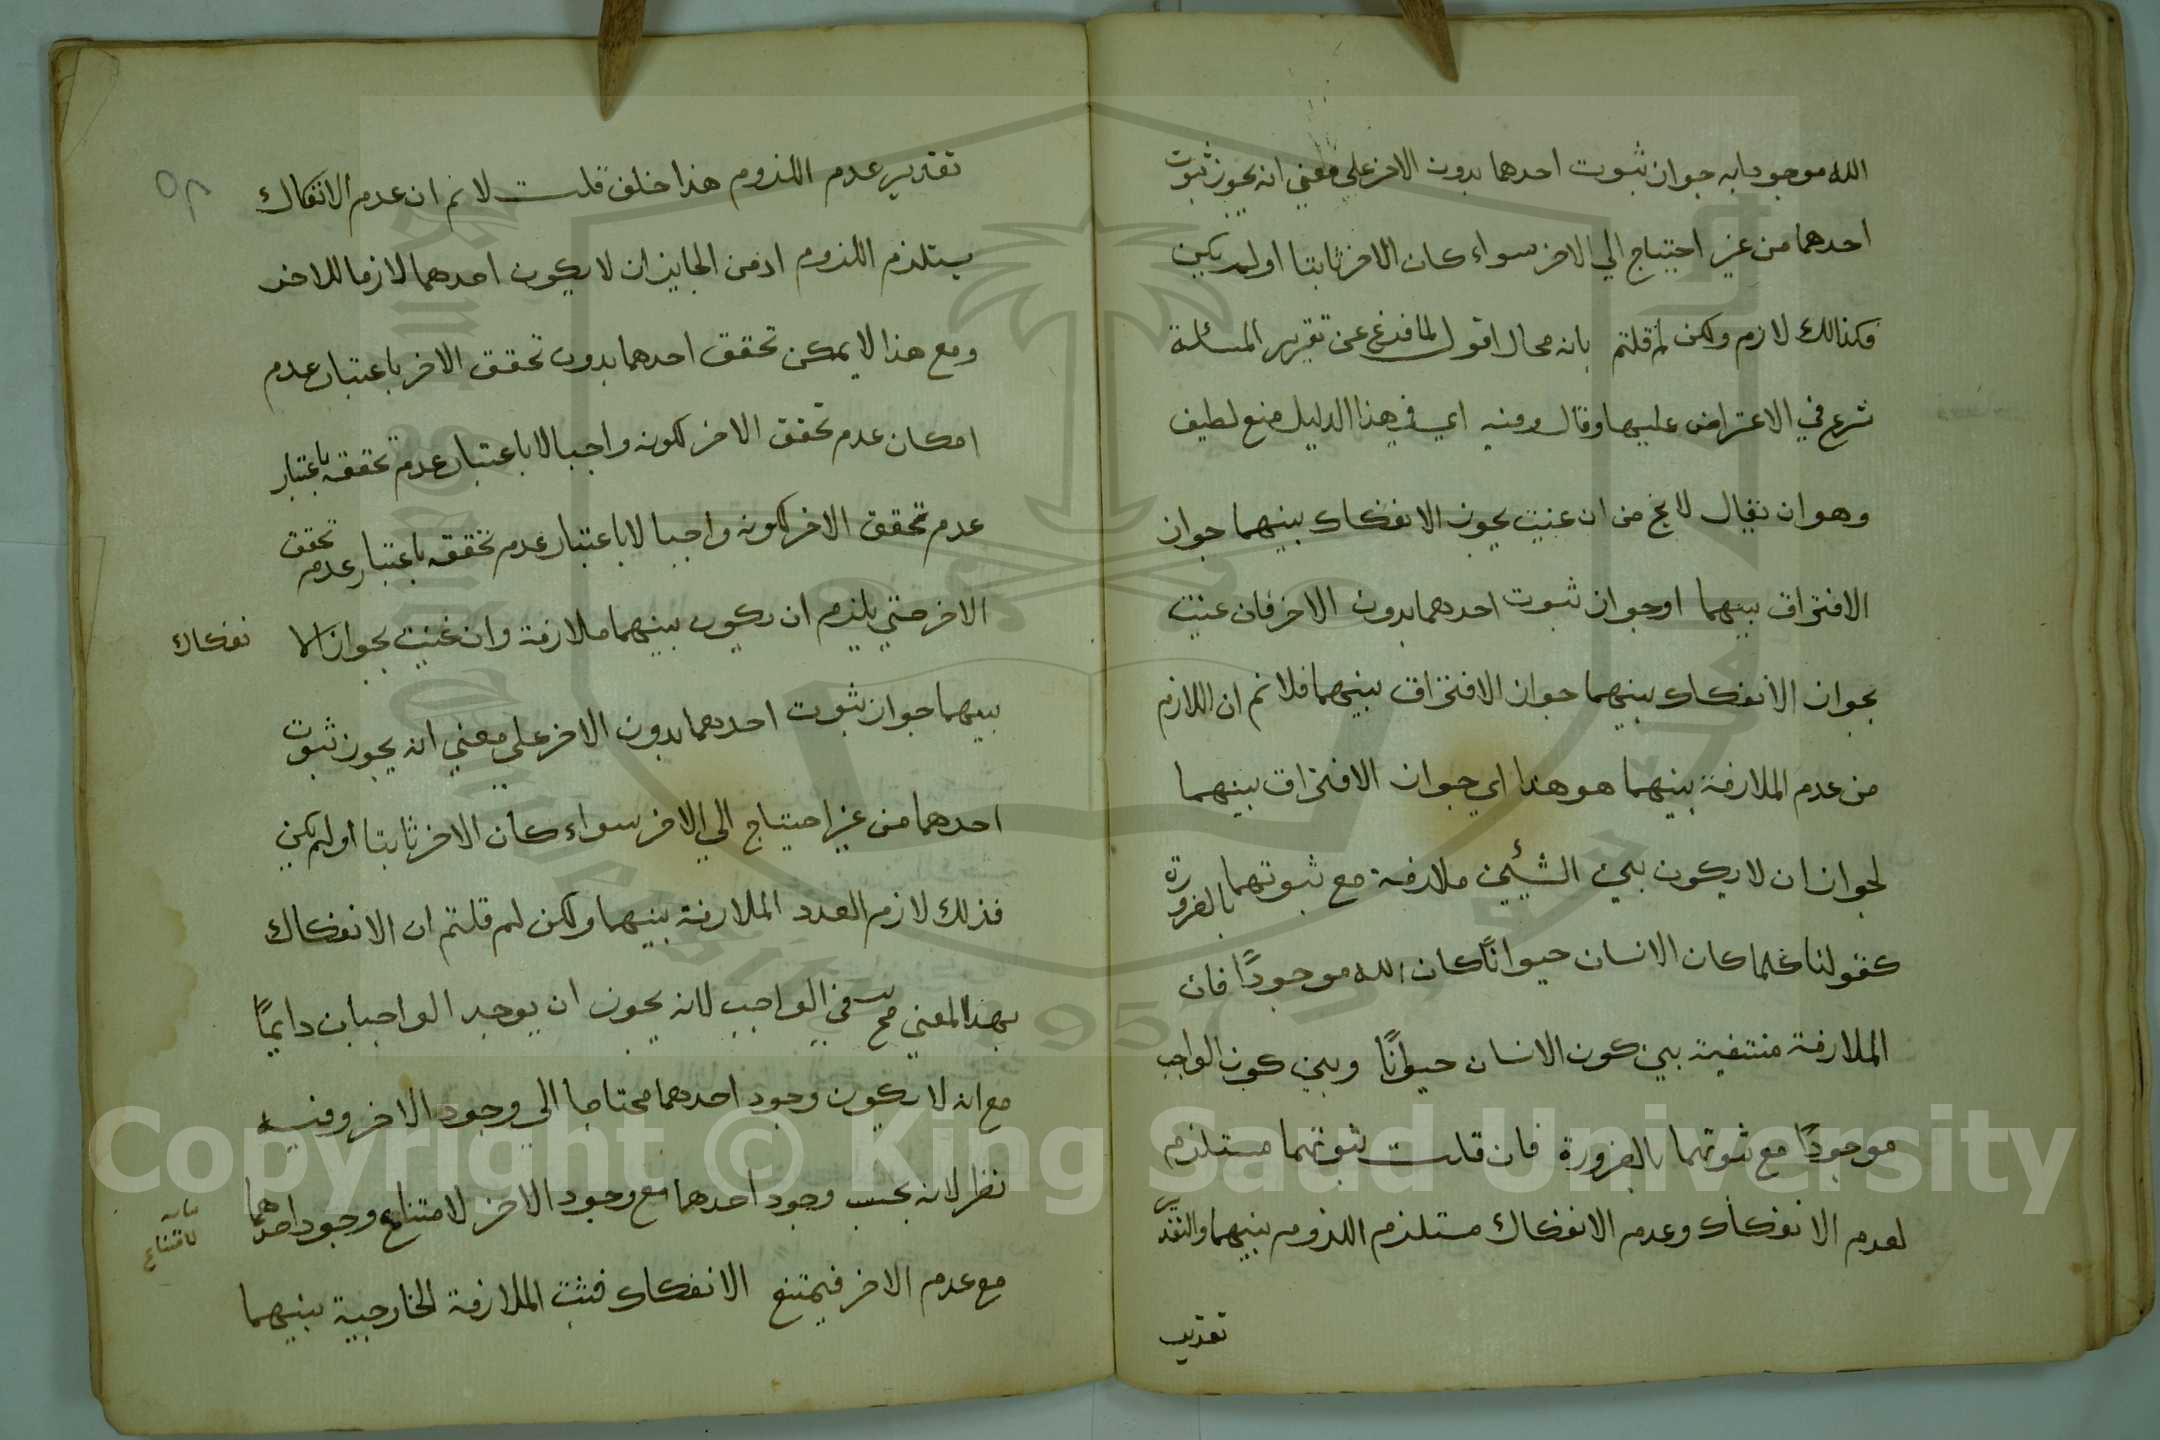 الله موجودا به جواز ثبوت احدهما بدون الاخر علي معني انه يجوز ثبوت
احدهما من غير احتياج الي الاخر سواء كان الاخر ثابتا او لم يكن
فكذالك لازم ولكن لم قلتم بانه محال اقول لما فرغ عن تقرير المسئلة
شرع في الاعتراض عليها وقال وفيه اي في هذا الدليل منع لطيف
وهو ان يقال لا يخ من ان عنيت يجوز الانفكاك بينهما جواز
الافتراق بينهما او جواز ثبوت احدهما بدون الاخر فان عنيت
بجواز الانفكاك بينهما جواز الافتراق بينهما فلا نم ان اللازم
من عدم الملازمة بينهما هو هذا اي جواز الافتراق بينهما
لجواز ان لا يكون بين الشيئين ملازمة مع ثبوتهما بالضرورة
كقولنا كلما كان الانسان حيوانًا كان الله موجودًا فان
الملازمة منتفية بين كون الانسان حيوانًا وبين كون الواجب
موجودًا مع ثبوتهما بالضرورة فان قلت ثبوتهما مستلزم
لعدم الانفكاك وعدم الانفكاك مستلزم اللزوم بينهما والتقدير
تقدير
٥٢
تقدير عدم اللزوم هذا خلف قلت لا نم ان عدم الانفكاك
يستلزم اللزوم اذ من الجايز ان لا يكون احدهما لازما للاخر
ومع هذا لا يمكن تحقق احدهما بدون تحقق الاخر باعتبار عدم
امكان عدم تحقق الاخر لكونه واجبا لا باعتبار عدم تحققه باعتبار
عدم تحقق الاخر لكونه واجبا لا باعتبار عدم تحققه باعتبار عدم تحقق
الاخر حتي يلزم ان يكون بينهما ملازمة وان عنيت بجواز الا نفكاك
بينهما جواز ثبوت احدهما بدون الاخر علي معني انه يجوز ثبوت
احدهما من غير احتياج الي الاخر سواء كان الاخر ثابتا او لم يكن
فذلك لازم العدد الملازمة بينهما ولكن لم قلتم ان الانفكاك
بهذا المعني مح في الواجب لانه يجوز ان يوجد الواجبان دايمًا
مع انه لا يكون وجود احدهما محتاجا الي وجود الاخر وفيه
نظر لانه بحسب وجود احدهما مع وجود الاخر لامتناع وجود احدهما
لامتناع
مع عدم الاخر فيمتنع الانفكاك فثبت الملازمة الخارجية بينهما
Copyright © King Saud University